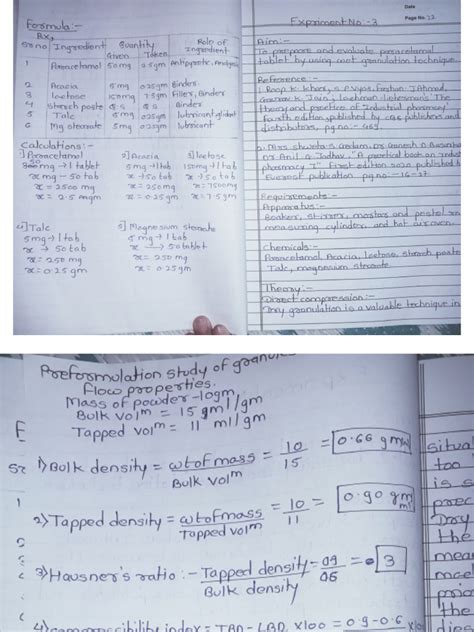 Formula:-
Rx,
Sr.no Ingredient Quantity Role of
Given Taken Ingredient
1 Paracetamol 50mg 2.5gm Antipyretic, Analgesic
2 Acacia 5mg 0.25gm Binder
3 lactose 150mg 7.5gm Filler, Binder
4 starch paste q.s q.s Binder
5 Talc 5mg 0.25gm lubricant, glidant
6 Mg stearate 5mg 0.25gm lubricant
Calculations:-
1] Paracetamol 2] Acacia 3] lactose
mg → 1 tablet 5mg → 1 tab 150mg → 1 tab
x mg → 50 tab x → 50 tab x → 50 tab
x = 2500 mg x = 250mg x = 7500mg
x = 2.5 mgm x = 0.25gm x = 7.5gm
4] Talc 5] Magnesium stearate
5mg → 1 tab 5 mg → 1 tab
x → 50 tab → 50 tablet
x = 250 mg x = 250 mg
x = 0.25 gm x = 0.25 gm
Date
Page No. 22
Expriment No :- 3
Aim:-
To prepare and evaluate paracetamol
tablet by using granulation technique.
Reference:-
1. Roop K. Khar, S.P. Vyas, Farhan J. Ahmad,
Gaurav K. Jain, Lachman Lieberman's The
theory and practice of Industrial pharmacy
Fourth edition, published by CBS publishers and
distributors, pg no:- 469.
2. Mrs. Gandam, Dr. Ganesh D.
Dr. Anil G. Jadhav, "A practical book on
pharmacy I" First edition published
Everest publication pg.no:- 16-17
Requirements:-
Apparatus:-
Beakers, stirrer, mortars and pristel
measuring cylinder, and hot air oven.
Chemicals:-
Paracetamol, Acacia, lactose, starch paste
Talc, magnesium stearate.
Theory:-
Direct compression:-
Dry granulation is a valuable technique in
Preformulation study of
Flow properties.
Mass of powder - 10gm
Bulk volm = 15 gml/gm
Tapped volm = 11 ml/gm
1) Bulk density = wt of mass / Bulk volm = 10 / 15 = 0.66
2) Tapped density = wt of mass / Tapped volm = 10 / 11 = 0.90 gm/ml
3) Hausner's ratio :- Tapped density / Bulk density
4) compressibility index = TBD - LBD x100 = 0.9-0.6 x100
situa
too
is s
Dry
the
mea
the